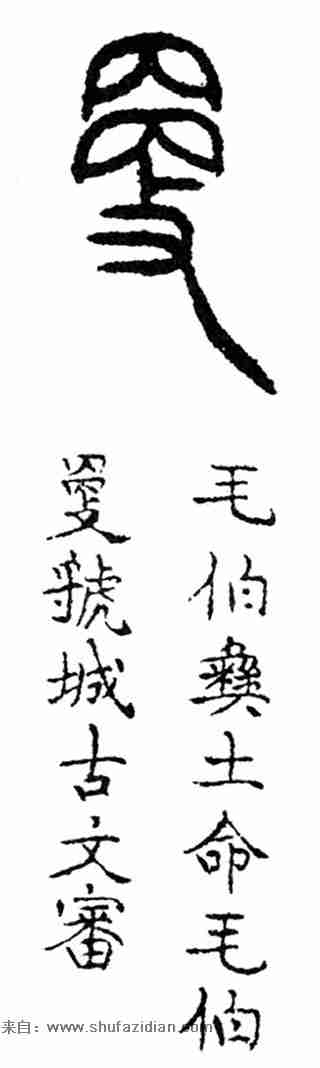 毛伯彝土命毛伯
虢城古文審
来自：www.shufazidian.com